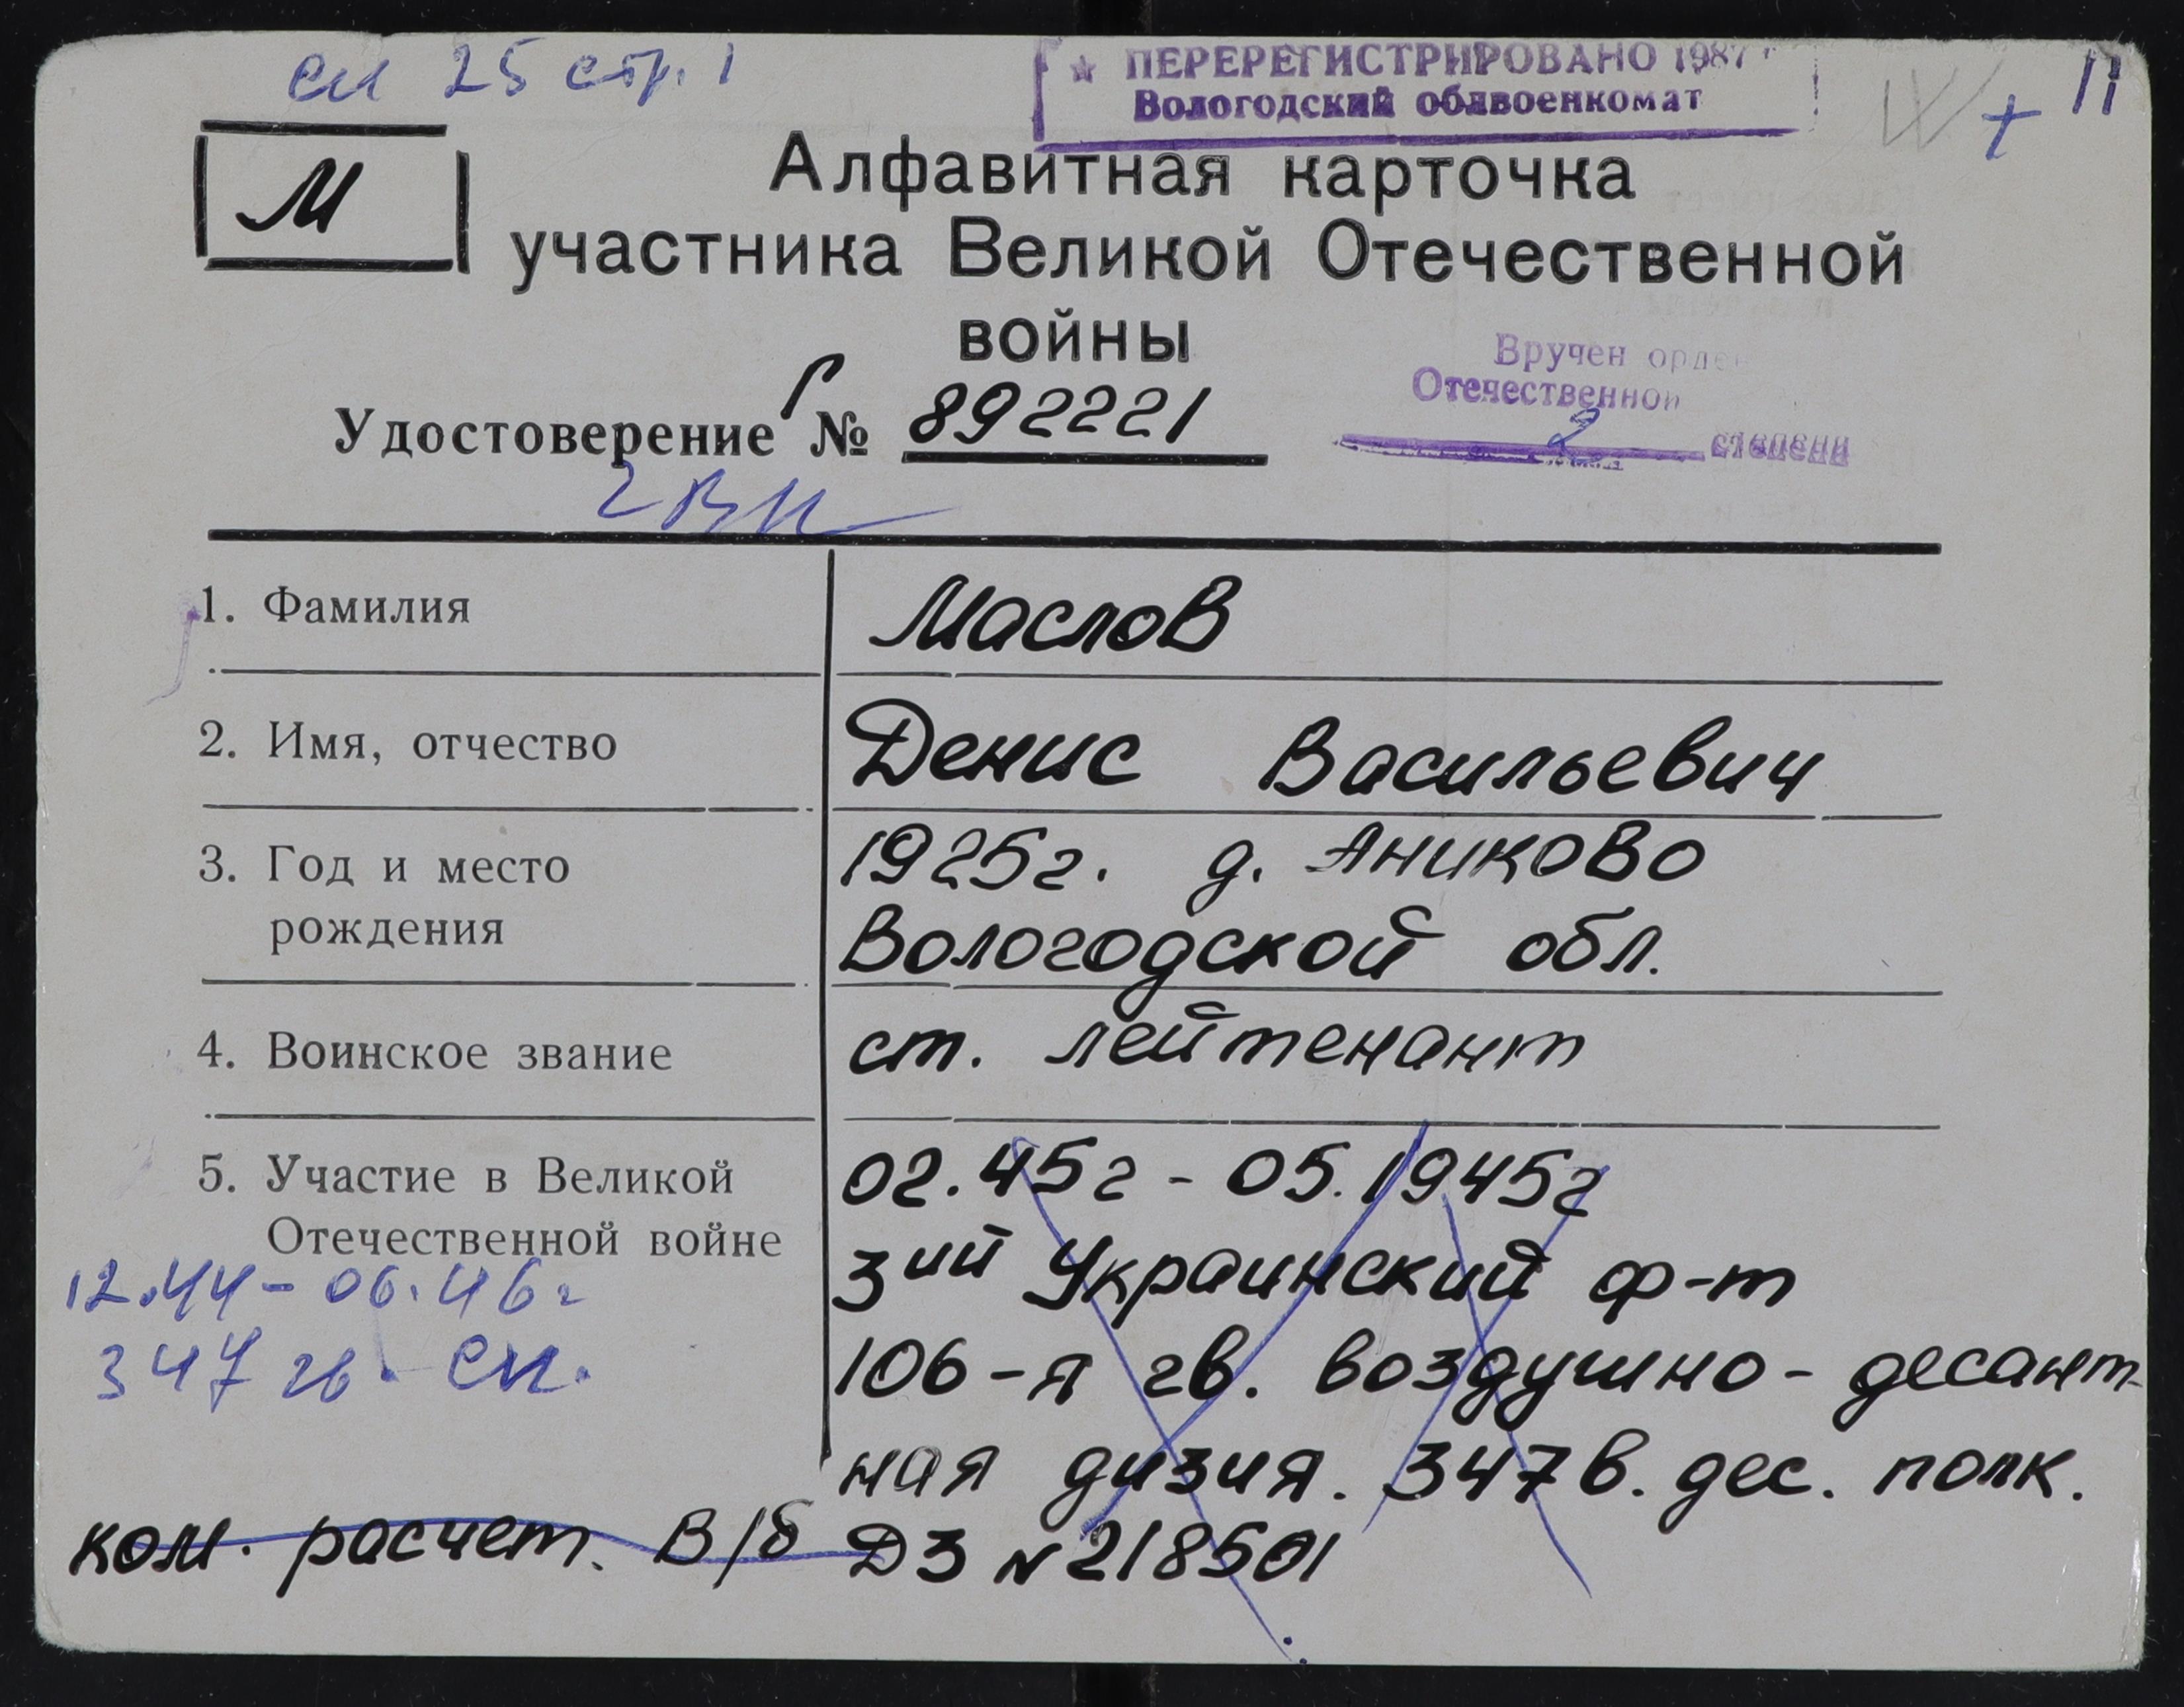 сп 25 стр. 1
★ ПЕРЕРЕГИСТРИРОВАНО 1987 г
Вологодский облвоенкомат
+ 11
М
Алфавитная карточка
участника Великой Отечественной
войны
Вручен орде
Отечественной
2 степени
Удостоверение Г № 892221
1. Фамилия Маслов
2. Имя, отчество Денис Васильевич
3. Год и место 1925г. д. Аниково
рождения Вологодской обл.
4. Воинское звание ст. лейтенант
5. Участие в Великой 02.45г - 05.1945г
Отечественной войне 3ий Украинский ф-т
12.44 - 06.46г
106-я гв. воздушно-десант-
347 гв. сп.
ная дизия. 347 в. дес. полк.
ком. расчет. В/б ДЗ № 218501